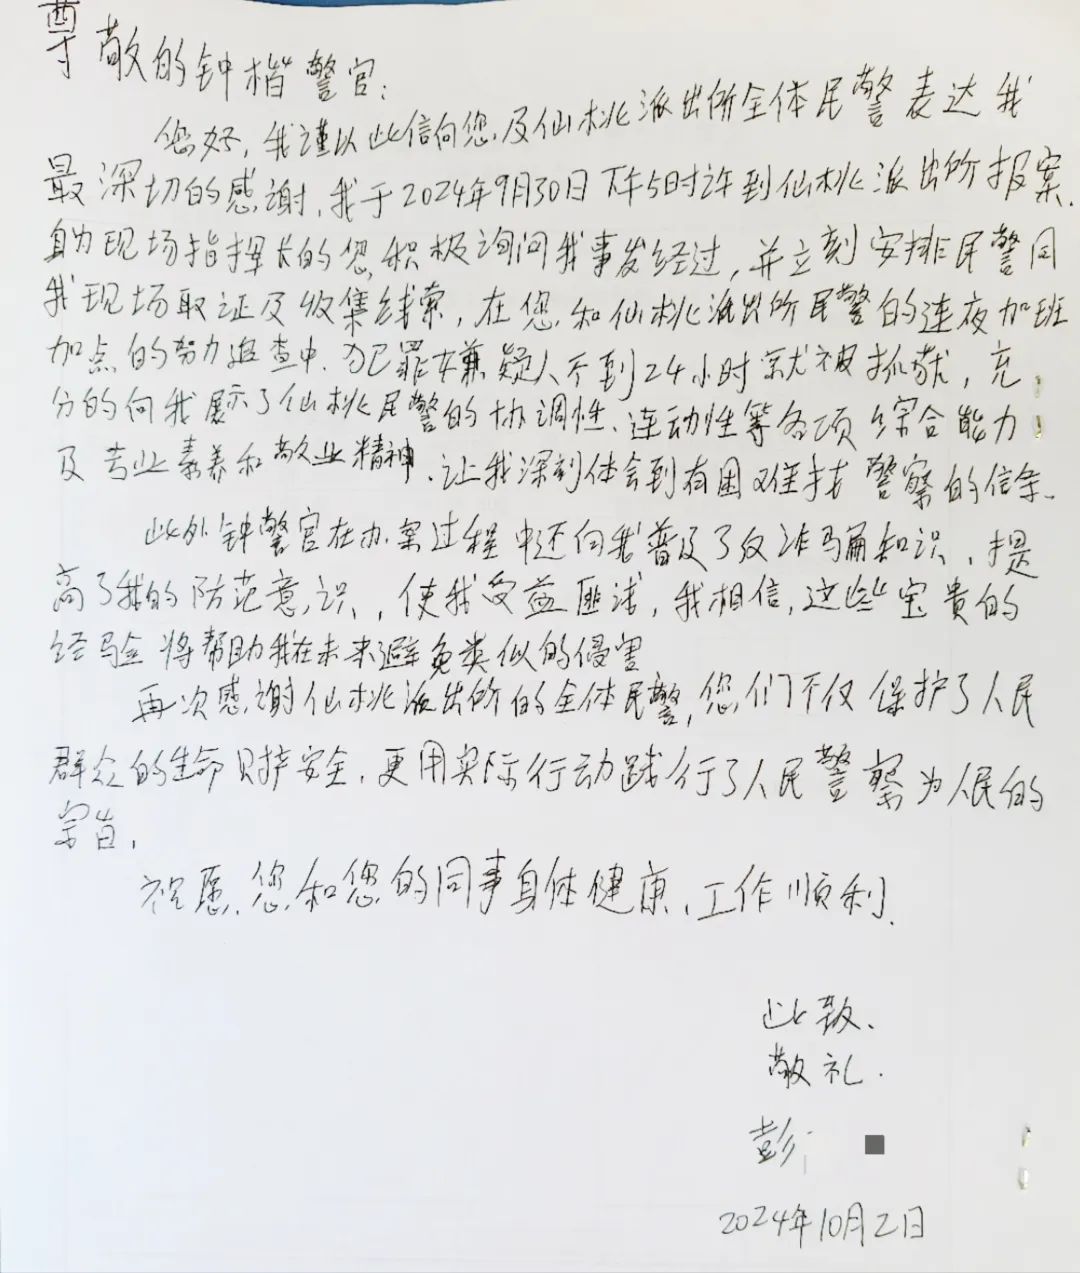 尊敬的钟楷警官:
您好,我谨以此信向您及仙桃派出所全体民警表达我
最深切的感谢,我于2024年9月30日下午5时许到仙桃派出所报案.
身为现场指挥长的您,积极询问我事发经过,并立刻安排民警同
我现场取证及收集线索,在您和仙桃派出所民警的连夜加班
加点的努力追查中.犯罪嫌疑人不到24小时就被抓获,充
分的向我展示了仙桃民警的协调性、连动性等各项综合能力
及专业素养和敬业精神.让我深刻体会到有困难找警察的信条.
此外钟警官在办案过程中还向我普及了反诈骗知识,提
高了我的防范意识,使我受益匪浅,我相信,这些宝贵的
经验将帮助我在未来避免类似的侵害
再次感谢仙桃派出所的全体民警,您们不仅保护了人民
群众的生命财产安全.更用实际行动践行了人民警察为人民的
宗旨,
祝愿,您和您的同事身体健康、工作顺利.
此致、
敬礼.
彭
2024年10月2日